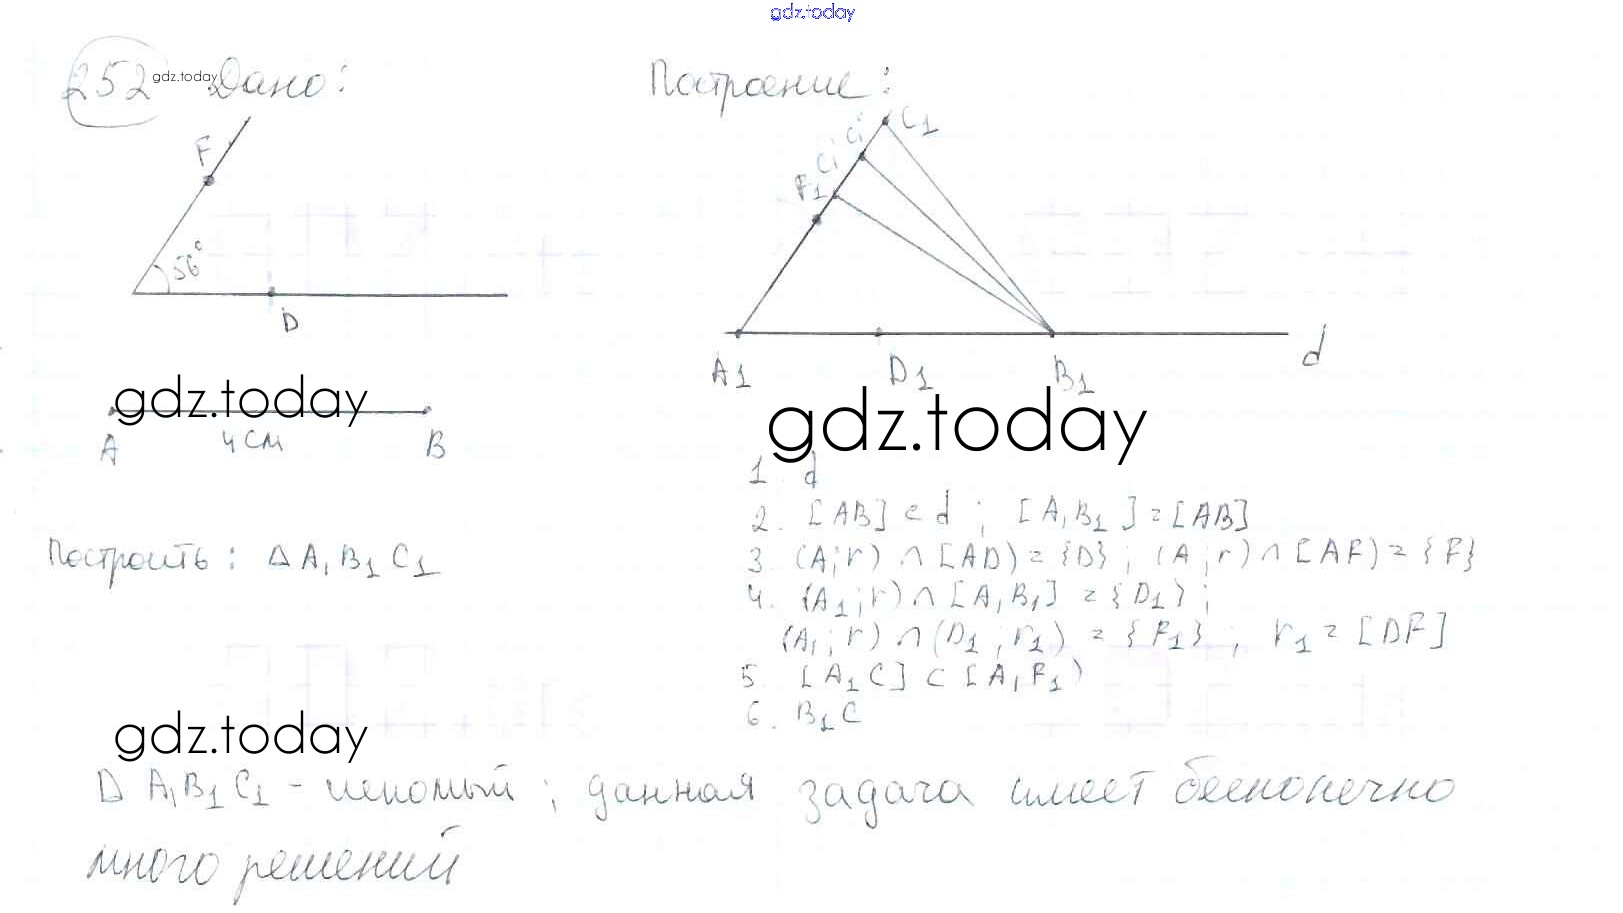 gdz.today
252 gdz.today Дано:
F
56°
D
gdz.today
A 4 см B
Построить: Δ A₁B₁C₁
Построение:
C₁
Ci
Ci
F₁
A₁ D₁ B₁ d
gdz.today
1. d
2. [AB] ⊂ d ; [A₁B₁] = [AB]
3. (A;r) ∩ [AD) = {D} ; (A;r) ∩ [AF) = {F}
4. (A₁;r) ∩ [A₁B₁] = {D₁} ;
(A₁;r) ∩ (D₁;r₁) = {F₁} ; r₁ = [DF]
5. [A₁C] ⊂ [A₁F₁)
6. B₁C
gdz.today
Δ A₁B₁C₁ - искомый ; данная задача имеет бесконечно
много решений